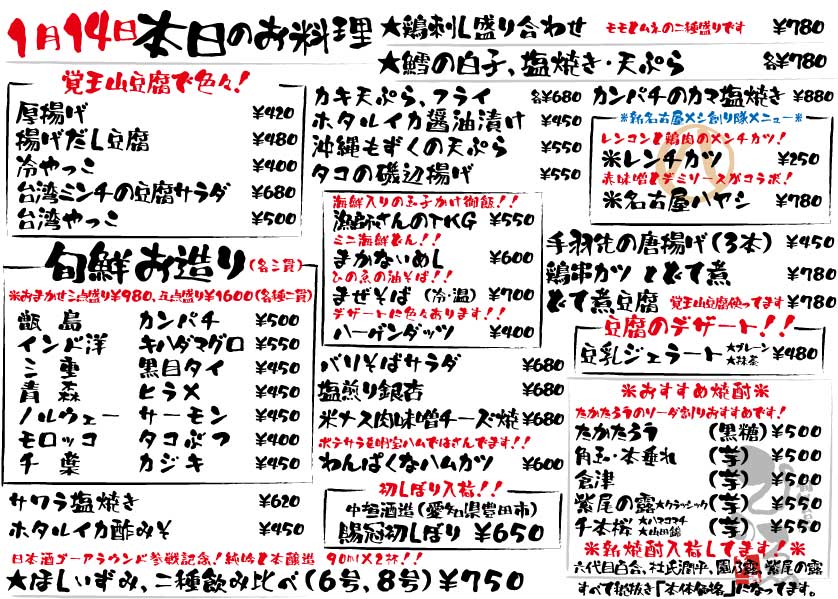 1月14日 本日のお料理
★鶏刺し盛り合わせ モモとムネの二種盛りです ¥780
★鱈の白子、塩焼き・天ぷら 各¥780
覚王山豆腐で色々！
厚揚げ ¥420
揚げだし豆腐 ¥480
冷やっこ ¥400
台湾ミンチの豆腐サラダ ¥680
台湾やっこ ¥500
旬鮮お造り(各三貫)
※おまかせ三点盛り¥980、五点盛り¥1600(各種二貫)
甑島 カンパチ ¥500
インド洋 キハダマグロ ¥550
三重 黒目タイ ¥450
青森 ヒラメ ¥450
ノルウェー サーモン ¥450
モロッコ タコぶつ ¥400
千葉 カジキ ¥450
サワラ塩焼き ¥620
ホタルイカ酢みそ ¥450
カキ天ぷら、フライ 各¥680
ホタルイカ醤油漬け ¥450
沖縄もずくの天ぷら ¥550
タコの磯辺揚げ ¥550
海鮮入りの玉子かけ御飯！！
漁師さんのTKG ¥550
ミニ海鮮どん！！
まかないめし ¥600
ひの魚の油そば！！
まぜそば (冷・温) ¥700
デザートに色々あります！！
ハーゲンダッツ ¥400
バリそばサラダ ¥680
塩煎り銀杏 ¥680
米ナス肉味噌チーズ焼 ¥680
ポテサラを明宝ハムではさんでます！！
わんぱくなハムカツ ¥600
初しぼり入荷！！
中垣酒造(愛知県豊田市)
賜冠初しぼり ¥650
カンパチのカマ塩焼き ¥880
※新名古屋メシ創り隊メニュー※
レンコンと鶏肉のメンチカツ！
※レンチカツ ¥250
赤味噌とデミソースがコラボ！
※名古屋ハヤシ ¥780
手羽先の唐揚げ(3本) ¥450
鶏串カツ とどて煮 ¥780
どて煮豆腐 覚王山豆腐使ってます ¥780
豆腐のデザート！！
豆乳ジェラート ★プレーン ★抹茶 ¥480
※おすすめ焼酎※
たかたろうのソーダ割りおすすめです！
たかたろう (黒糖) ¥500
角玉・本垂れ (芋) ¥500
倉津 (芋) ¥500
紫尾の露★クラッシック(芋) ¥550
千本桜 ★ハマコマチ ★山田錦 (芋) ¥550
※新焼酎入荷してます！※
六代目百合、杜氏潤平、園乃露、紫尾の露
すべて税抜き「本体価格」になってます。
日本酒ゴーアラウンド参戦記念！純吟と本醸造 90ml×2杯！！
★ほしいずみ、二種飲み比べ(6号、8号)¥750